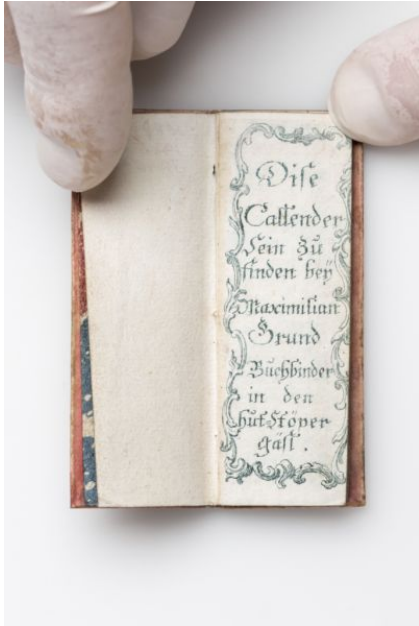 Dise
Callender
sein zu
finden beÿ
Maximilian
Grund
Buchbinder
in den
hutstoper
gässl.